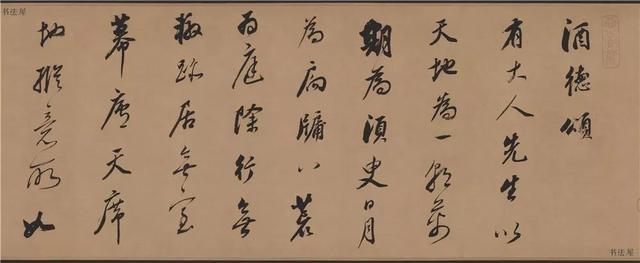 书法犀
酒德頌
有大人先生以
天地為一朝萬
期為須臾日月
為扃牖八荒
為庭除行無
轍跡居無室
幕廬天席
地縱意所如
书法犀